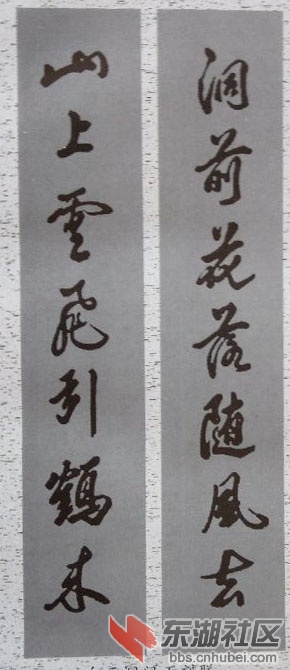 洞前花落随風去
山上雲飛引鶴来
东湖社区
bbs.cnhubei.com